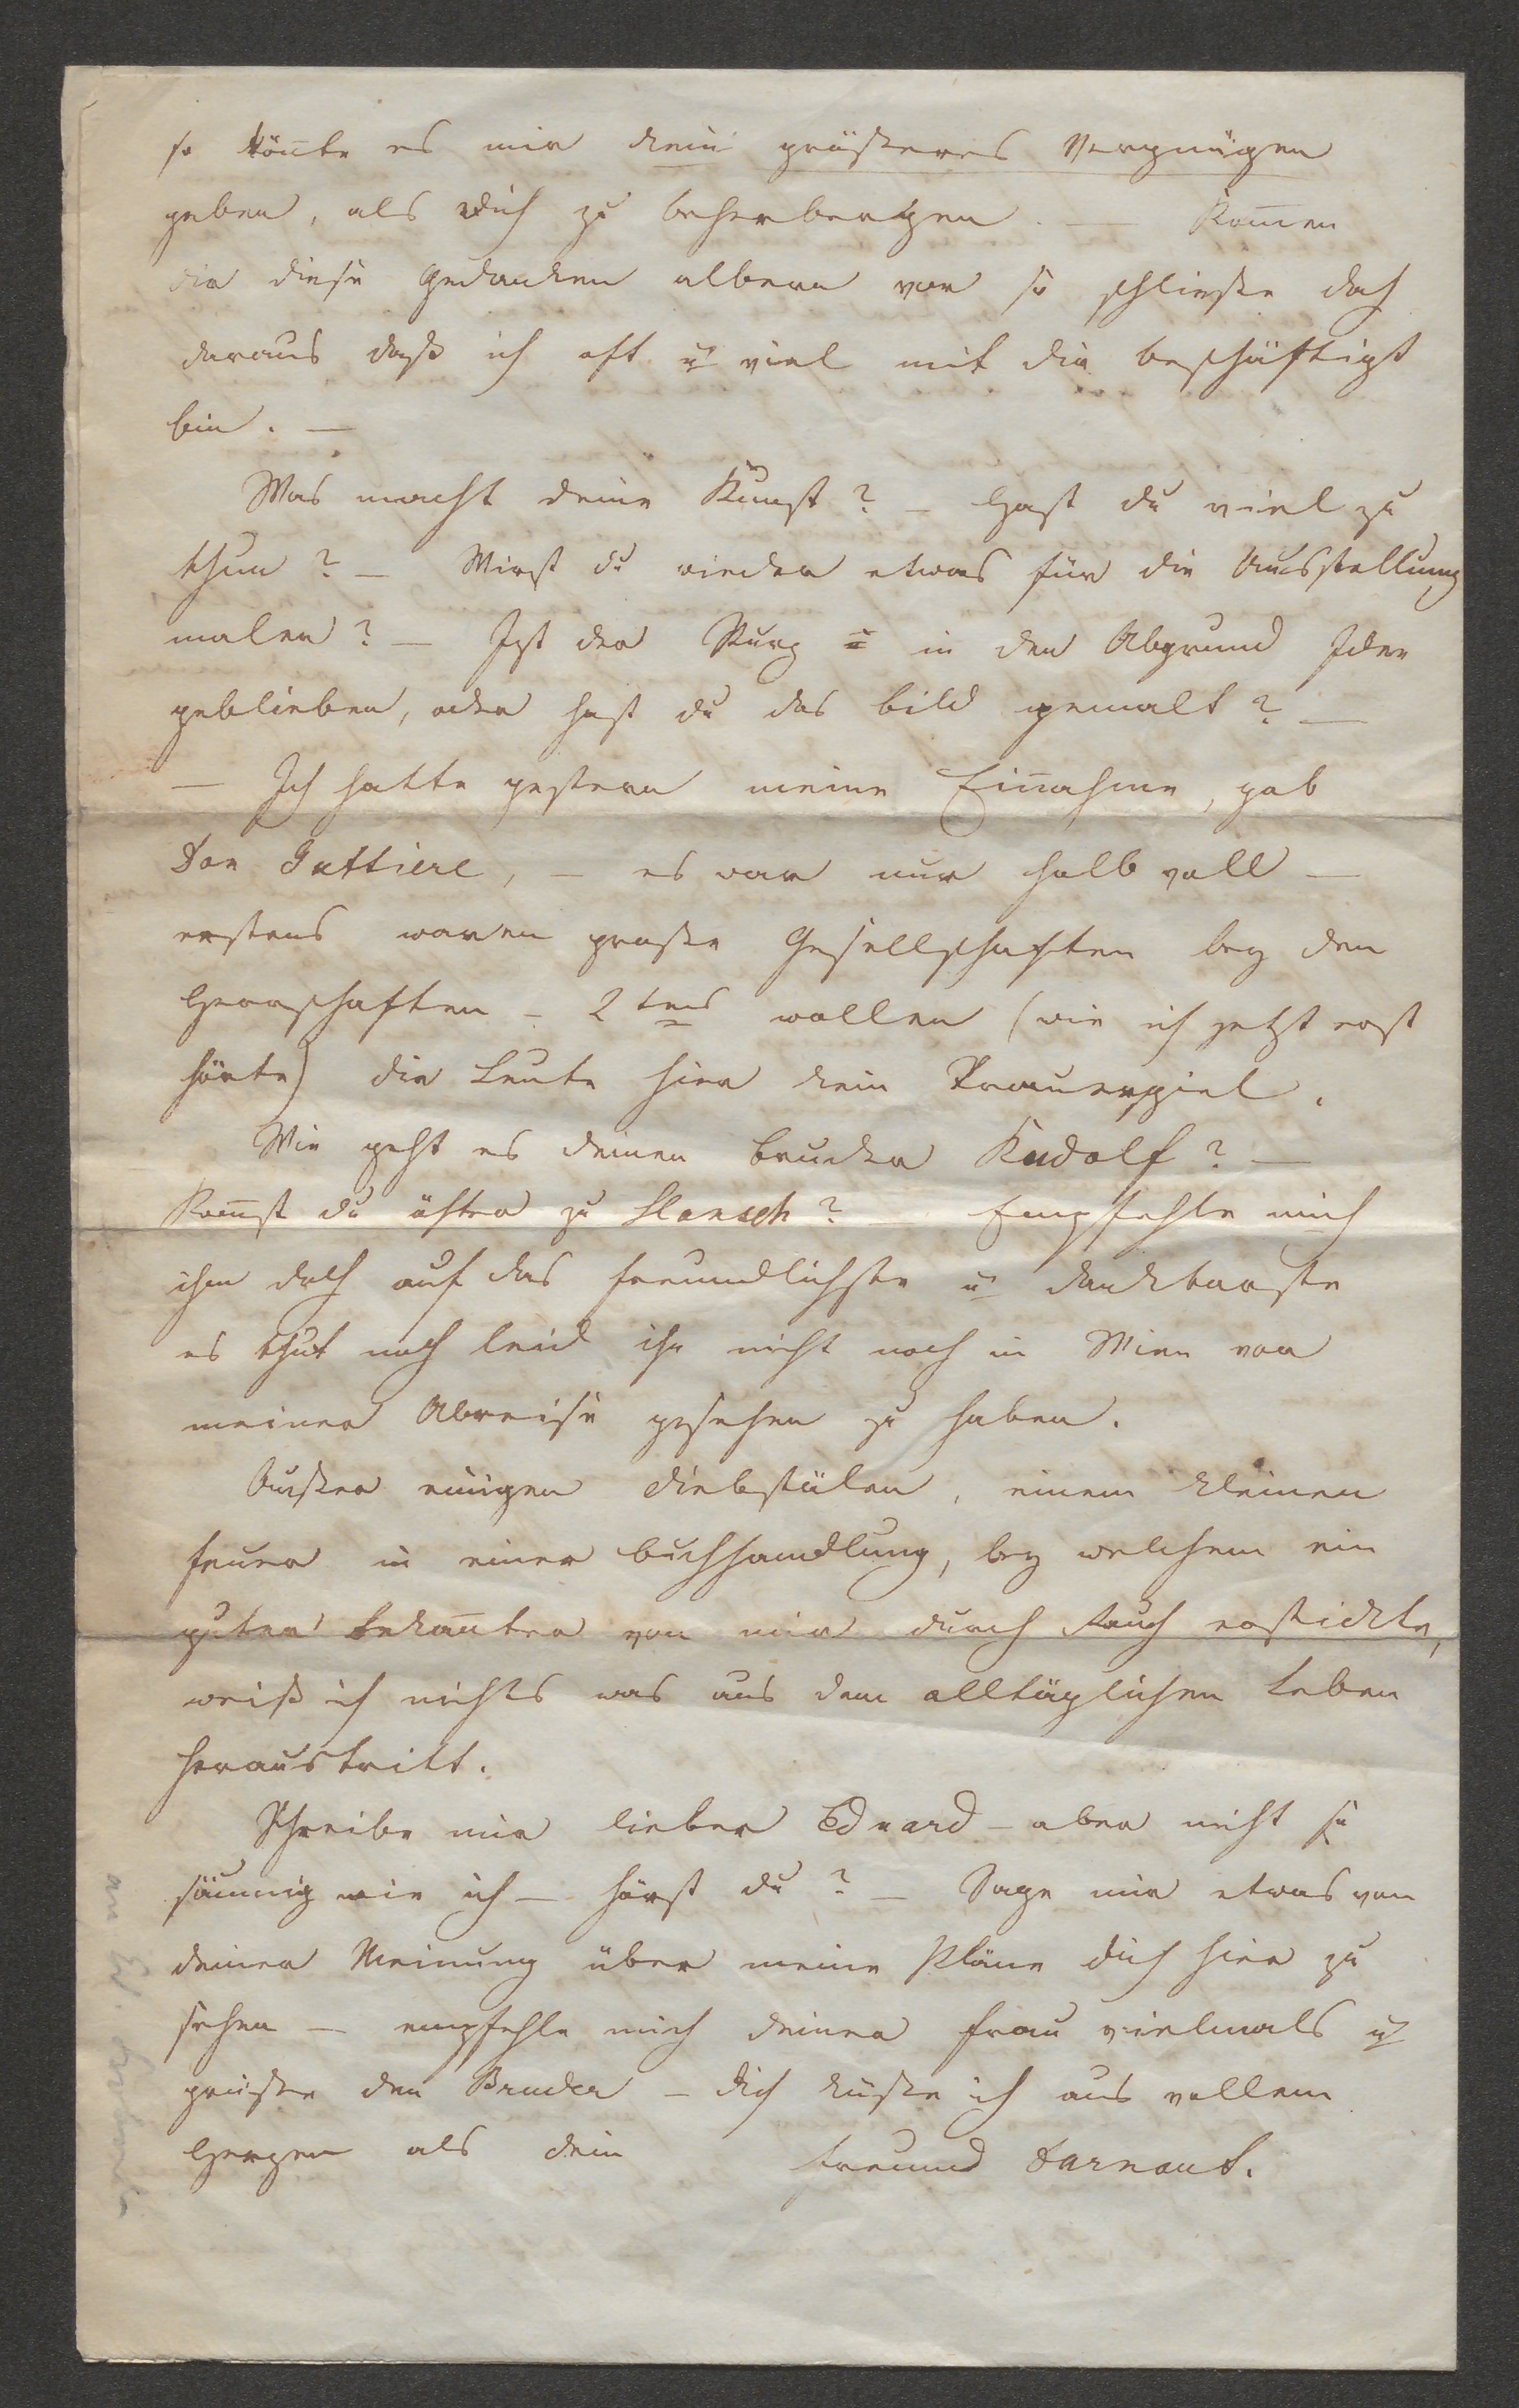 so könnte es mir kein größeres Vergnügen
geben, als dich zu beherbergen. — Kom̄en
dir diese Gedanken albern vor so schließe doch
daraus daß ich oft u viel mit dir beschäftigt
bin. —
Was macht deine Kunst? — Hast du viel zu
thun? — Wirst du wieder etwas für die Ausstellung
malen? — Ist der Sturz in den Abgrund Idee
geblieben, oder hast du das Bild gemalt? —
— Ich hatte gestern meine Ein̄ahme, gab
Don Guttiere, — es war nur halb voll —
erstens waren große Gesellschaften bey den
Herrschaften — 2tens wollen (wie ich jetzt erst
hörte) die Leute hier kein Trauerspiel.
Wie geht es deinen Bruder Rudolf? —
Kom̄st du öfter zu Hansch? — Empfehle mich
ihm doch auf das freundlichste u dankbarste
es thut mich leid ihn nicht noch in Wien vor
meiner Abreise gesehen zu haben.
Außer einigen Diebstälen, einem kleinen
Feuer in einer Buchhandlung, bey welchem ein
guter Bekan̄ter von mir durch Rauch erstickte,
weiß ich nichts was aus dem alltäglichen Leben
heraustritt.
Schreibe mir lieber Eduard — aber nicht so
säumig wie ich — hörst du? — Sage mir etwas von
deiner Meinung über meine Pläne dich hier zu
sehen — empfehle mich deiner Frau vielmals u
grüße den Bruder — dich küße ich aus vollem
Herzen als dein Freund Darnaut.
an Ed.